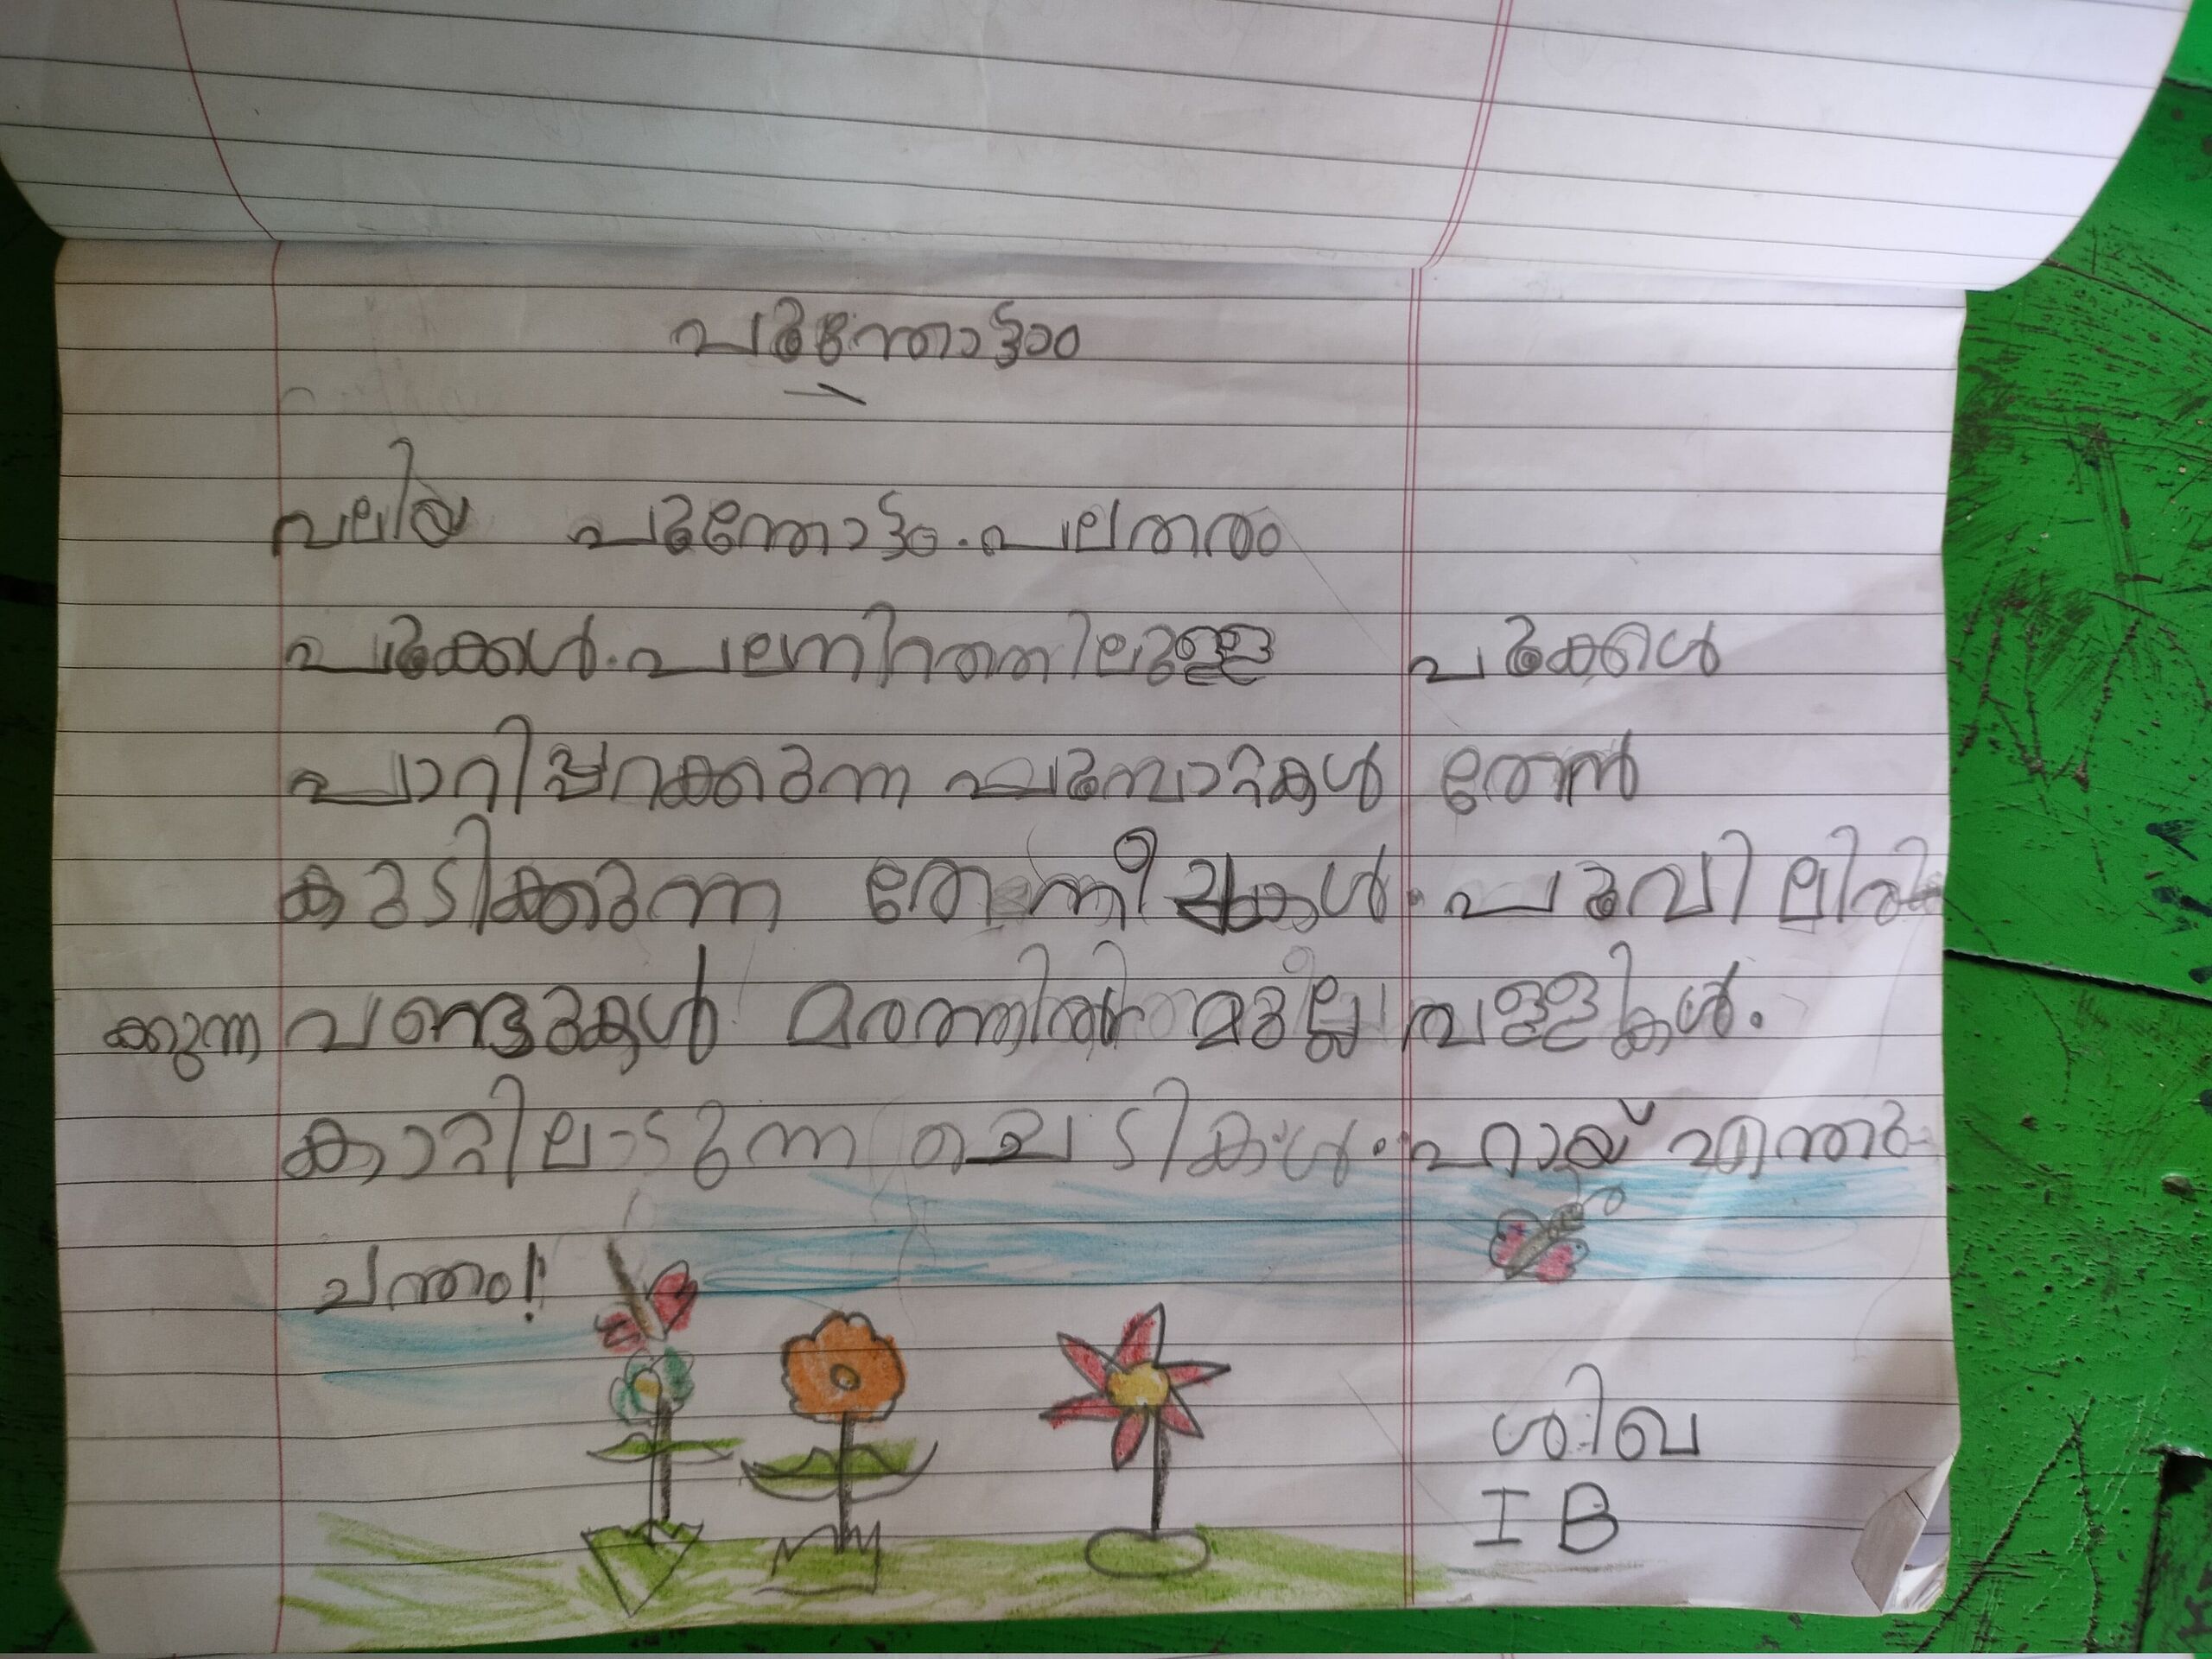 പൂന്തോട്ടം
വലിയ പൂന്തോട്ടം. പലതരം
പൂക്കൾ. പലനിറത്തിലുള്ള പൂക്കൾ
പാറിപ്പറക്കുന്ന പൂമ്പാറ്റകൾ തേൻ
കുടിക്കുന്ന തേനീച്ചകൾ. പൂവിലിരി
ക്കുന്ന വണ്ടുകൾ മരത്തിൽ മുല്ല വള്ളികൾ.
കാറ്റിലാടുന്ന ചെടികൾ. ഹായ് എന്തൊരു
ചന്തം!
ശിഖ
I B